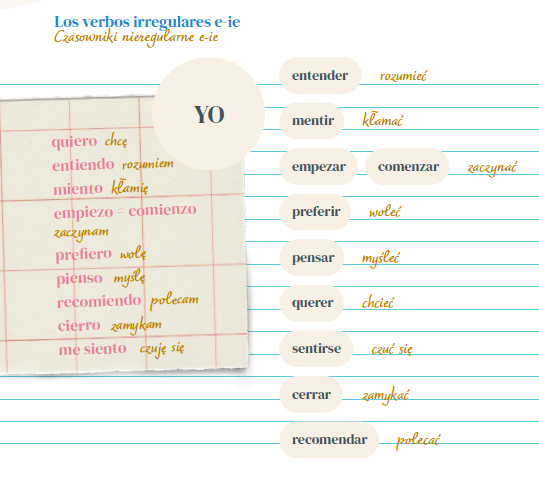 Los verbos irregulares e-ie
Czasowniki nieregularne e-ie
YO
quiero chcę
entiendo rozumiem
miento kłamię
empiezo = comienzo
zaczynam
prefiero wolę
pienso myślę
recomiendo polecam
cierro zamykam
me siento czuję się
entender rozumieć
mentir kłamać
empezar comenzar zaczynać
preferir woleć
pensar myśleć
querer chcieć
sentirse czuć się
cerrar zamykać
recomendar polecać